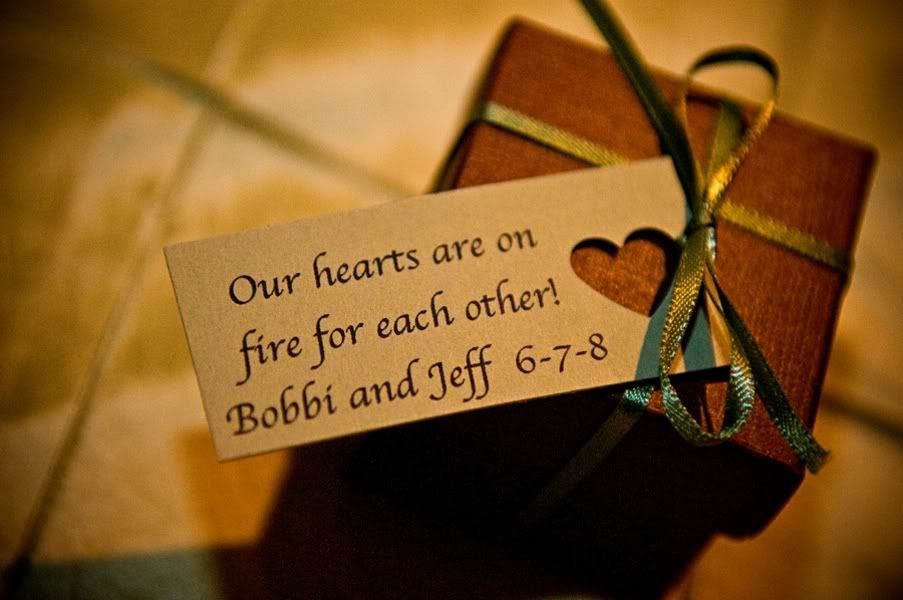 Our hearts are on
fire for each other!
Bobbi and Jeff 6-7-8